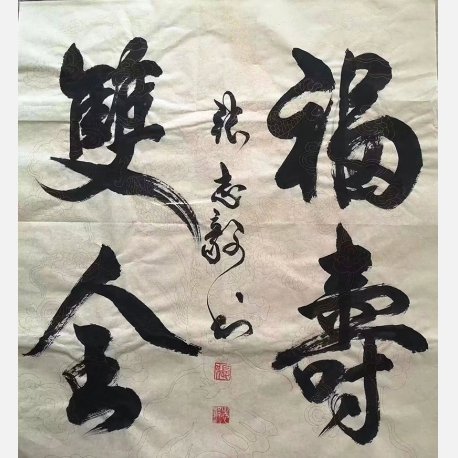 福壽
雙全
張志毅书